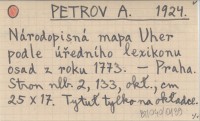 PETROV A. 1924.
Národopisná mapa Uher
podle úředního lexikonu
osad z roku 1773. – Praha.
Stron nlb 2, 133, okł., cm
25 x 17. Tytuł tylko na okładce.